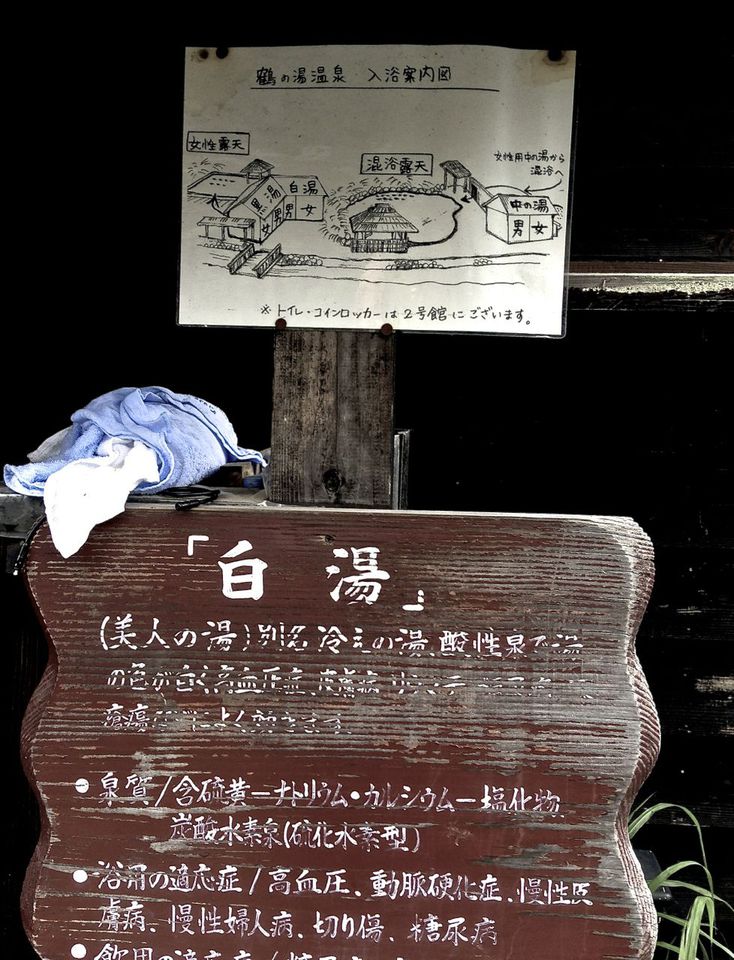 鶴の湯温泉 入浴案内図
女性露天
混浴露天
女性用中の湯から
混浴へ
黒湯
白湯
女 男
男 女
中の湯
男 女
※トイレ・コインロッカーは2号館にございます。
「白湯」
(美人の湯)別名 冷えの湯、酸性泉で湯
の色が白く高血圧症、皮膚病、リウマチ
瘡瘍 によく効きます
●泉質/含硫黄ーナトリウム・カルシウムー塩化物
炭酸水素泉(硫化水素型)
●浴用の適応症/高血圧、動脈硬化症、慢性皮
膚病、慢性婦人病、切り傷、糖尿病
●飲用の適応症/糖尿